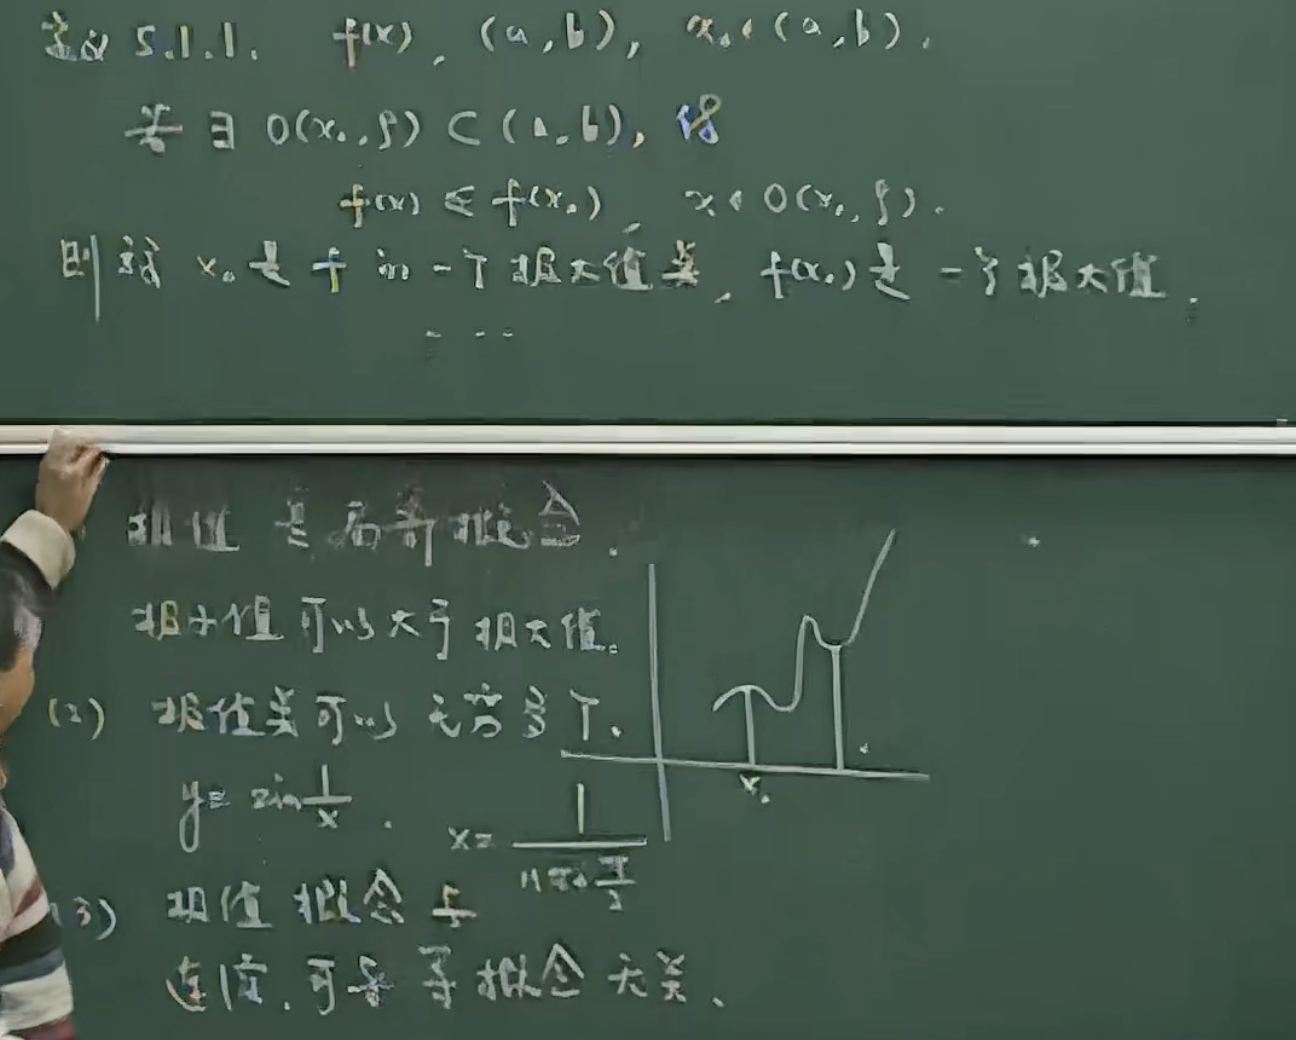 定义 5.1.1. f(x), (a,b), x₀∈(a,b).
若 ∃ O(x₀,ρ) ⊂ (a,b), 使
f(x) ≤ f(x₀), x∈O(x₀,ρ).
则称 x₀是 f 的一个极大值点, f(x₀)是一个极大值.
...
极值是局部概念.
极小值可以大于极大值.
(2) 极值点可以无穷多个.
y= sin 1/x .
x= 1/(nπ+π/2)
x₀
(3) 极值概念与
连续, 可导等概念无关.